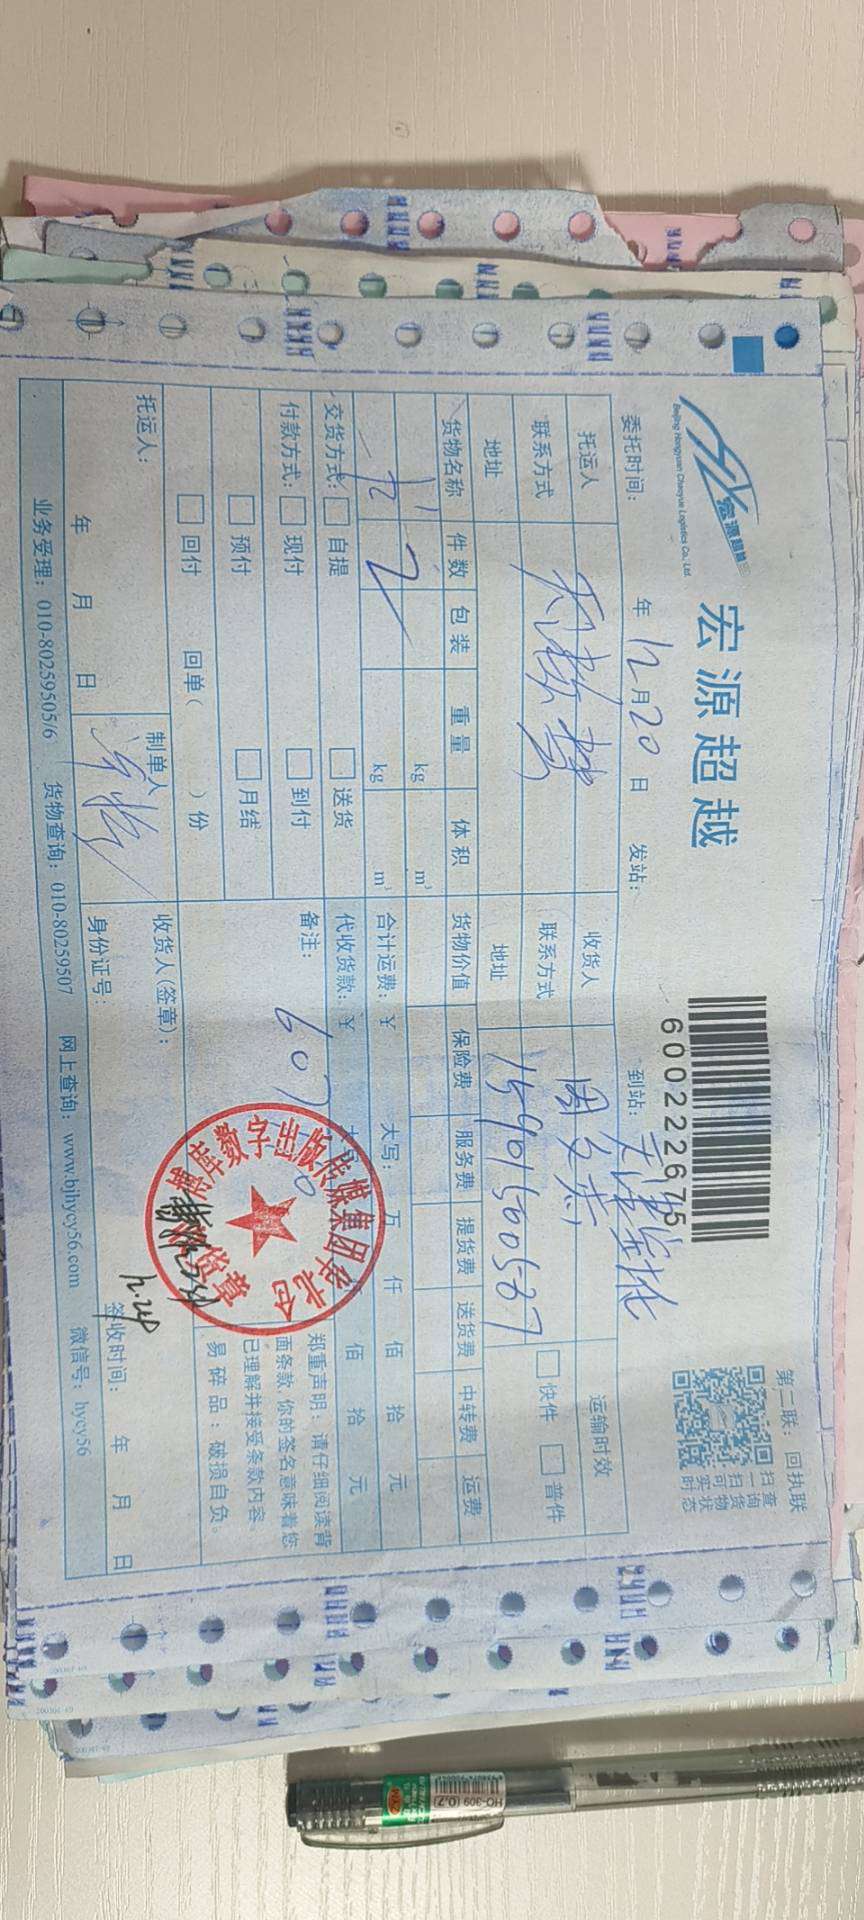 宏源超越
宏源超越
Beijing Hongyuan Chaoyue Logistics Co., Ltd.
6002222675
第二联：回执联
扫一扫可实时
查询货物状态
委托时间： 年 12月20日 发站： 到站：天津
托运人 收货人 周文杰 运输时效
联系方式 联系方式 15901500567 快件 普件
地址 地址
货物名称 件数 包装 重量 体积 货物价值 保险费 服务费 提货费 送货费 中转费 运费
kg m³
2 kg m³
交货方式： 自提 送货 合计运费：¥ 大写： 万 仟 佰 拾 元
付款方式： 现付 到付 代收货款：¥ 仟 佰 拾 元
预付 月结 备注： 607
回付 回单（ ）份
郑重声明：请仔细阅读背
面条款，你的签名意味着您
已理解并接受条款内容。
易碎品：破损自负。
博库数字出版传媒集团
托运人： 制单人 收货人(签章)：
年 月 日 身份证号： 签收时间： 年 月 日
12.24
业务受理：010-80259505/6 货物查询：010-80259507 网上查询：www.bjhycy56.com 微信号：hycy56
HO-309 (0.7)